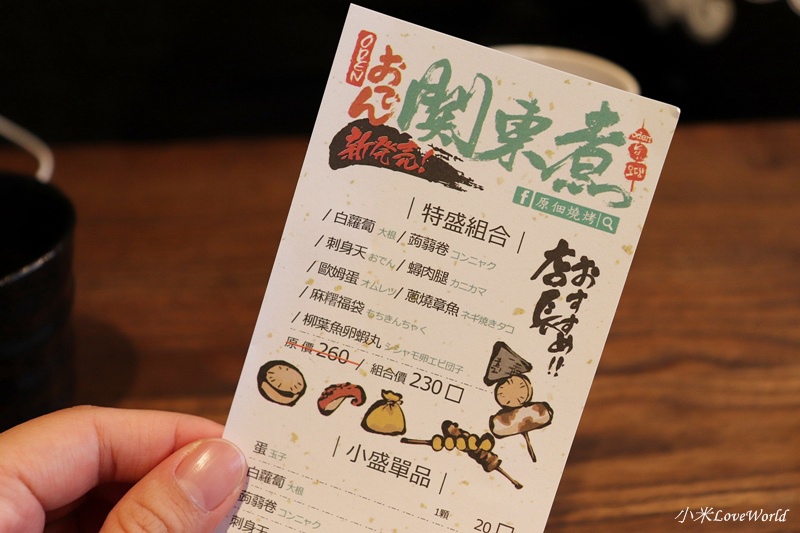 ODEN
おでん
関東煮
新発売！
原佃燒烤
特盛組合
/白蘿蔔 大根 /蒟蒻卷 コンニャク
/刺身天 おでん /蟳肉腿 カニカマ
/歐姆蛋 オムレツ /蔥燒章魚 ネギ焼きタコ
/麻糬福袋 もちきんちゃく
/柳葉魚卵蝦丸 シシャモ卵エビ団子
原價 260 / 組合價 230
店長おすすめ!!
小盛單品
蛋 玉子 1顆 20
白蘿蔔 大根
蒟蒻卷 コンニャク
刺身天
小米LoveWorld